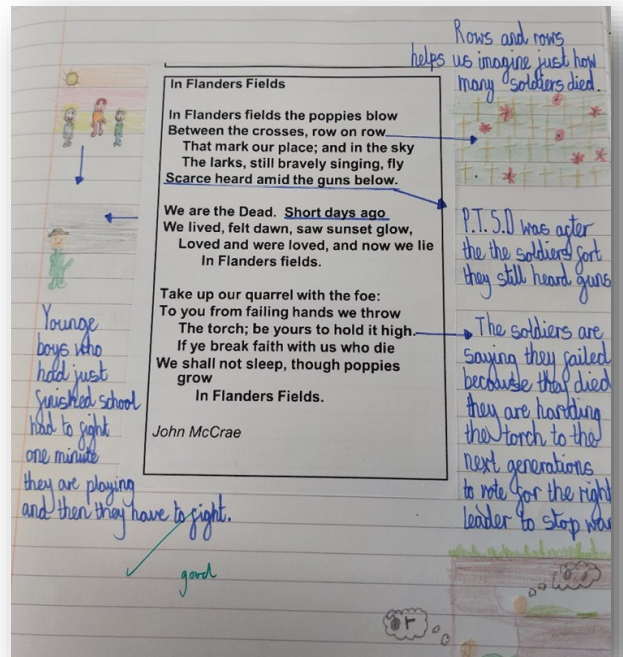 Rows and rows
helps us imagine just how
many soldiers died.
In Flanders Fields
In Flanders fields the poppies blow
Between the crosses, row on row
That mark our place; and in the sky
The larks, still bravely singing, fly
Scarce heard amid the guns below.
We are the Dead. Short days ago
We lived, felt dawn, saw sunset glow,
Loved and were loved, and now we lie
In Flanders fields.
Take up our quarrel with the foe:
To you from failing hands we throw
The torch; be yours to hold it high.
If ye break faith with us who die
We shall not sleep, though poppies
grow
In Flanders Fields.
John McCrae
P.T.S.D was after
the the soldiers fort
they still heard guns
The soldiers are
saying they failed
because that died
they are handing
the torch to the
next generations
to vote for the right
leader to stop wa
Younge
boys who
had just
finished school
had to fight
one minute
they are playing
and then they have to fight.
good